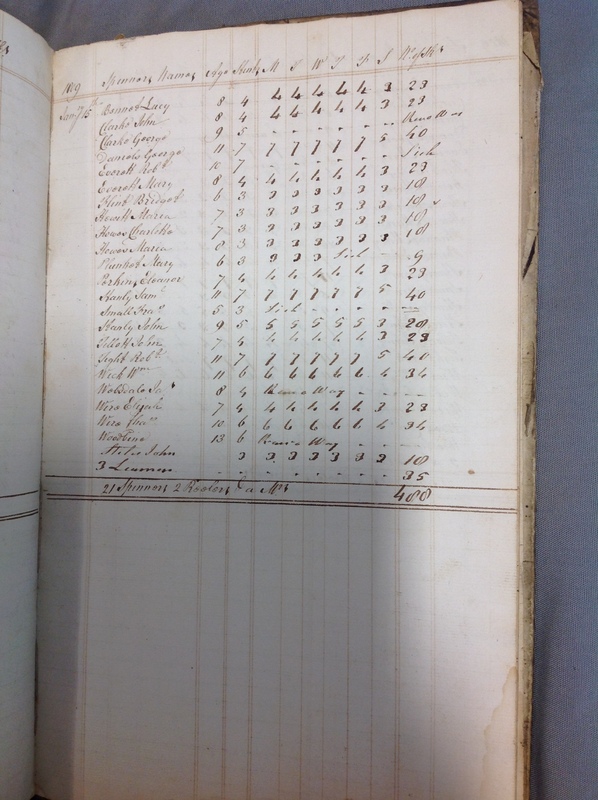 1809 Spinners Names Age Hank M T W T F S
Jany 15th Bennet Lucy 8 4 4 4 4 4 4 3 23
Clarke John 8 4 4 4 4 4 4 3 23
Clarke George 9 5 - - - - - - Run a Way
Daniels George 11 7 7 7 7 7 7 5 40
Everett Robt 10 7 - - - - - - Sick
Everett Mary 8 4 4 4 4 4 4 3 23
Flint Bridget 6 3 3 3 3 3 3 3 18
Howett Maria 7 3 3 3 3 3 3 3 18
Howes Charlotte 7 3 3 3 3 3 3 3 18
Howes Maria 8 3 3 3 3 3 3 3 18
Plunket Mary 6 3 3 3 3 Sick - - 9
Perkins Eleanor 7 4 4 4 4 4 4 3 23
Stanly Saml 11 7 7 7 7 7 7 5 40
Small Fras 5 3 Sick - - - - - -
Stanly John 9 5 5 5 5 5 5 3 28
Tillott John 7 4 4 4 4 4 4 3 23
Tight Robt 11 7 7 7 7 7 7 5 40
Week Wm 11 6 6 6 6 6 6 4 34
Jas 8 4 Run a Way - - -
Wire Elijah 7 4 4 4 4 4 4 3 23
Wire 10 6 6 6 6 6 6 4 34
Woodbine 13 6 Run a Way - - -
Stiles John 3 3 3 3 3 3 3 18
3 Learners - - - - - - - 35
21 Spinners 2 Reelers & a Ms 488